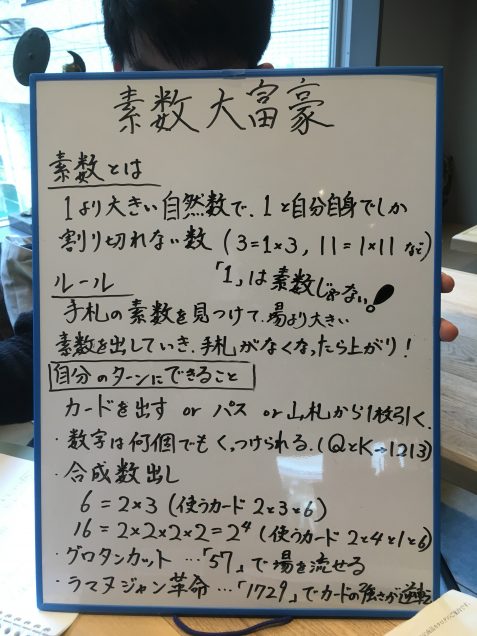 素数大富豪
素数とは
1より大きい自然数で、1と自分自身でしか
割り切れない数 (3=1×3, 11=1×11 など)
「1」は素数じゃない!
ルール
手札の素数を見つけて、場より大きい
素数を出していき、手札がなくなったら上がり!
自分のターンにできること
カードを出す or パス or 山札から1枚引く、
・数字は何個でもくっつけられる。(QとK→1213)
・合成数出し
6=2×3 (使うカード 2と3と6)
16=2×2×2×2=2⁴ (使うカード 2と4と1と6)
・グロタンカット…「57」で場を流せる
・ラマヌジャン革命…「1729」でカードの強さが逆転